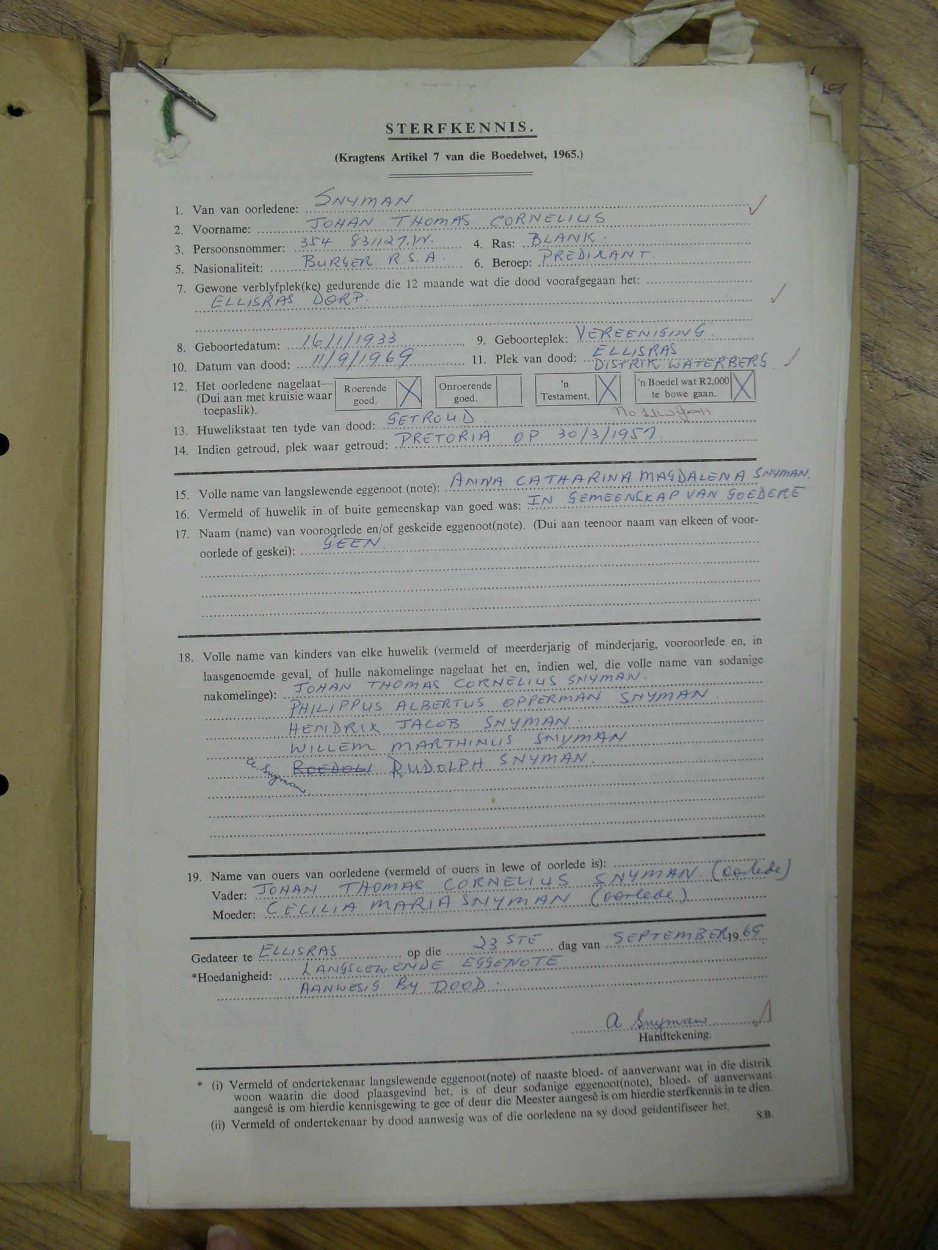 STERFKENNIS.
(Kragtens Artikel 7 van die Boedelwet, 1965.)
1. Van van oorledene: SNYMAN
2. Voorname: JOHAN THOMAS CORNELIUS
3. Persoonsnommer: 354 831127.W. 4. Ras: BLANK.
5. Nasionaliteit: BURGER R.S.A. 6. Beroep: PREDIKANT.
7. Gewone verblyfplek(ke) gedurende die 12 maande wat die dood voorafgegaan het:
ELLISRAS DORP.
8. Geboortedatum: 16/1/1933 9. Geboorteplek: VEREENIGING.
10. Datum van dood: 11/9/1969 11. Plek van dood: ELLISRAS
DISTRIK WATERBERG
12. Het oorledene nagelaat— (Dui aan met kruisie waar toepaslik). Roerende goed. X Onroerende goed. 'n Testament. X 'n Boedel wat R2,000 te bowe gaan. X
13. Huwelikstaat ten tyde van dood: GETROUD
14. Indien getroud, plek waar getroud: PRETORIA OP 30/3/1957.
15. Volle name van langslewende eggenoot (note): ANNA CATHARINA MAGDALENA SNYMAN.
16. Vermeld of huwelik in of buite gemeenskap van goed was: IN GEMEENSKAP VAN GOEDERE
17. Naam (name) van vooroorlede en/of geskeide eggenoot(note). (Dui aan teenoor naam van elkeen of voor-
oorlede of geskei): GEEN
18. Volle name van kinders van elke huwelik (vermeld of meerderjarig of minderjarig, vooroorlede en, in
laasgenoemde geval, of hulle nakomelinge nagelaat het en, indien wel, die volle name van sodanige
nakomelinge): JOHAN THOMAS CORNELIUS SNYMAN.
PHILIPPUS ALBERTUS OPPERMAN SNYMAN
HENDRIK JACOB SNYMAN
WILLEM MARTHINUS SNYMAN
a Snyman RUDOLPH SNYMAN.
19. Name van ouers van oorledene (vermeld of ouers in lewe of oorlede is):
Vader: JOHAN THOMAS CORNELIUS SNYMAN (oorlede)
Moeder: CECILIA MARIA SNYMAN (oorlede)
Gedateer te ELLISRAS op die 23 STE dag van SEPTEMBER 1969
*Hoedanigheid: LANGSLEWENDE EGGENOTE
AANWESIG BY DOOD.
a Snyman
Handtekening.
* (i) Vermeld of ondertekenaar langslewende eggenoot(note) of naaste bloed- of aanverwant wat in die distrik
woon waarin die dood plaasgevind het, is of deur sodanige eggenoot(note), bloed- of aanverwant
aangesê is om hierdie kennisgewing te gee of deur die Meester aangesê is om hierdie sterfkennis in te dien.
(ii) Vermeld of ondertekenaar by dood aanwesig was of die oorledene na sy dood geïdentifiseer het.
S.B.